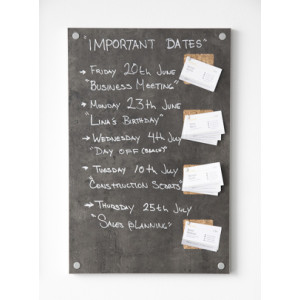 "IMPORTANT DATES"
→ FRIDAY 20th JUNE
"BUSINESS MEETING"
→ MONDAY 23th JUNE
"LINA'S BIRTHDAY"
→ WEDNESDAY 4th JULY
"DAY OFF (BEACH)"
→ TUESDAY 10th JULY
"CONSTRUCTION
→ THURSDAY 25th JULY
"SALES PLANNING"